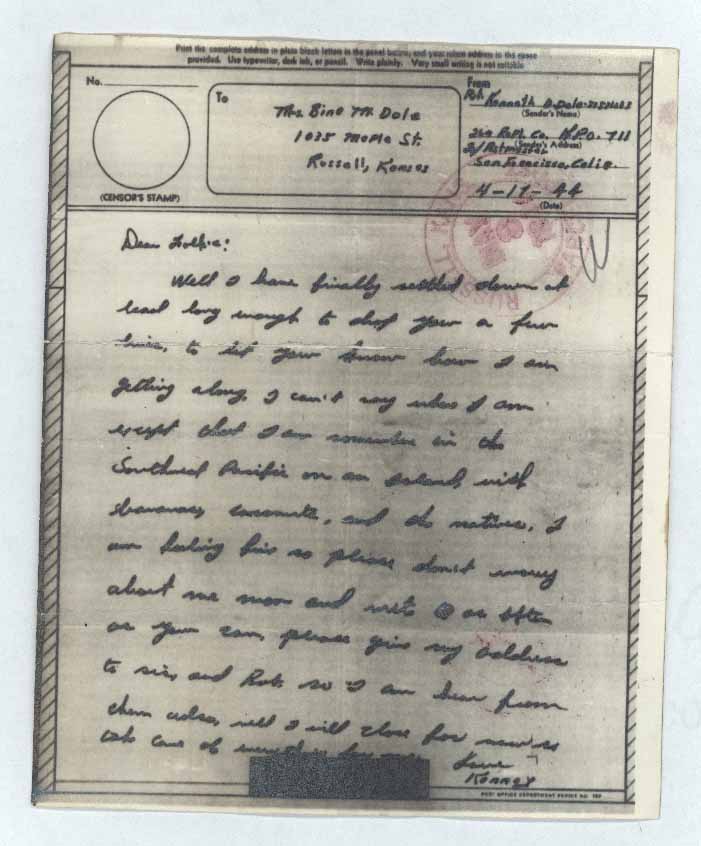 Print the complete address in plain block letters in the panel below, and your return address in the space
provided. Use typewriter, dark ink, or pencil. Write plainly. Very small writing is not suitable.
No.
(CENSOR'S STAMP)
To
Mrs Bina M. Dole
1035 Maple St.
Russell, Kansas
From
Pvt. Kenneth D. Dole
(Sender's Name)
Repl. Co. A.P.O. 711
(Sender's Address)
c/o Postmaster
San Francisco, Calif.
4-17-44
(Date)
RUSSELL
Dear Folks:
Well I have finally settled down at
least long enough to drop you a few
lines, to let you know how I am
getting along. I can't say where I am
except that I am somewhere in the
Southwest Pacific on an island, with
bananas, coconuts, and the natives. I
am feeling fine so please don't worry
about me mom and write as often
as you can, please give my address
to sis, and Bob. so I can hear from
them also, well I will close for now so
take care of everything for me.
Love
Kenney
POST OFFICE DEPARTMENT PERMIT NO.